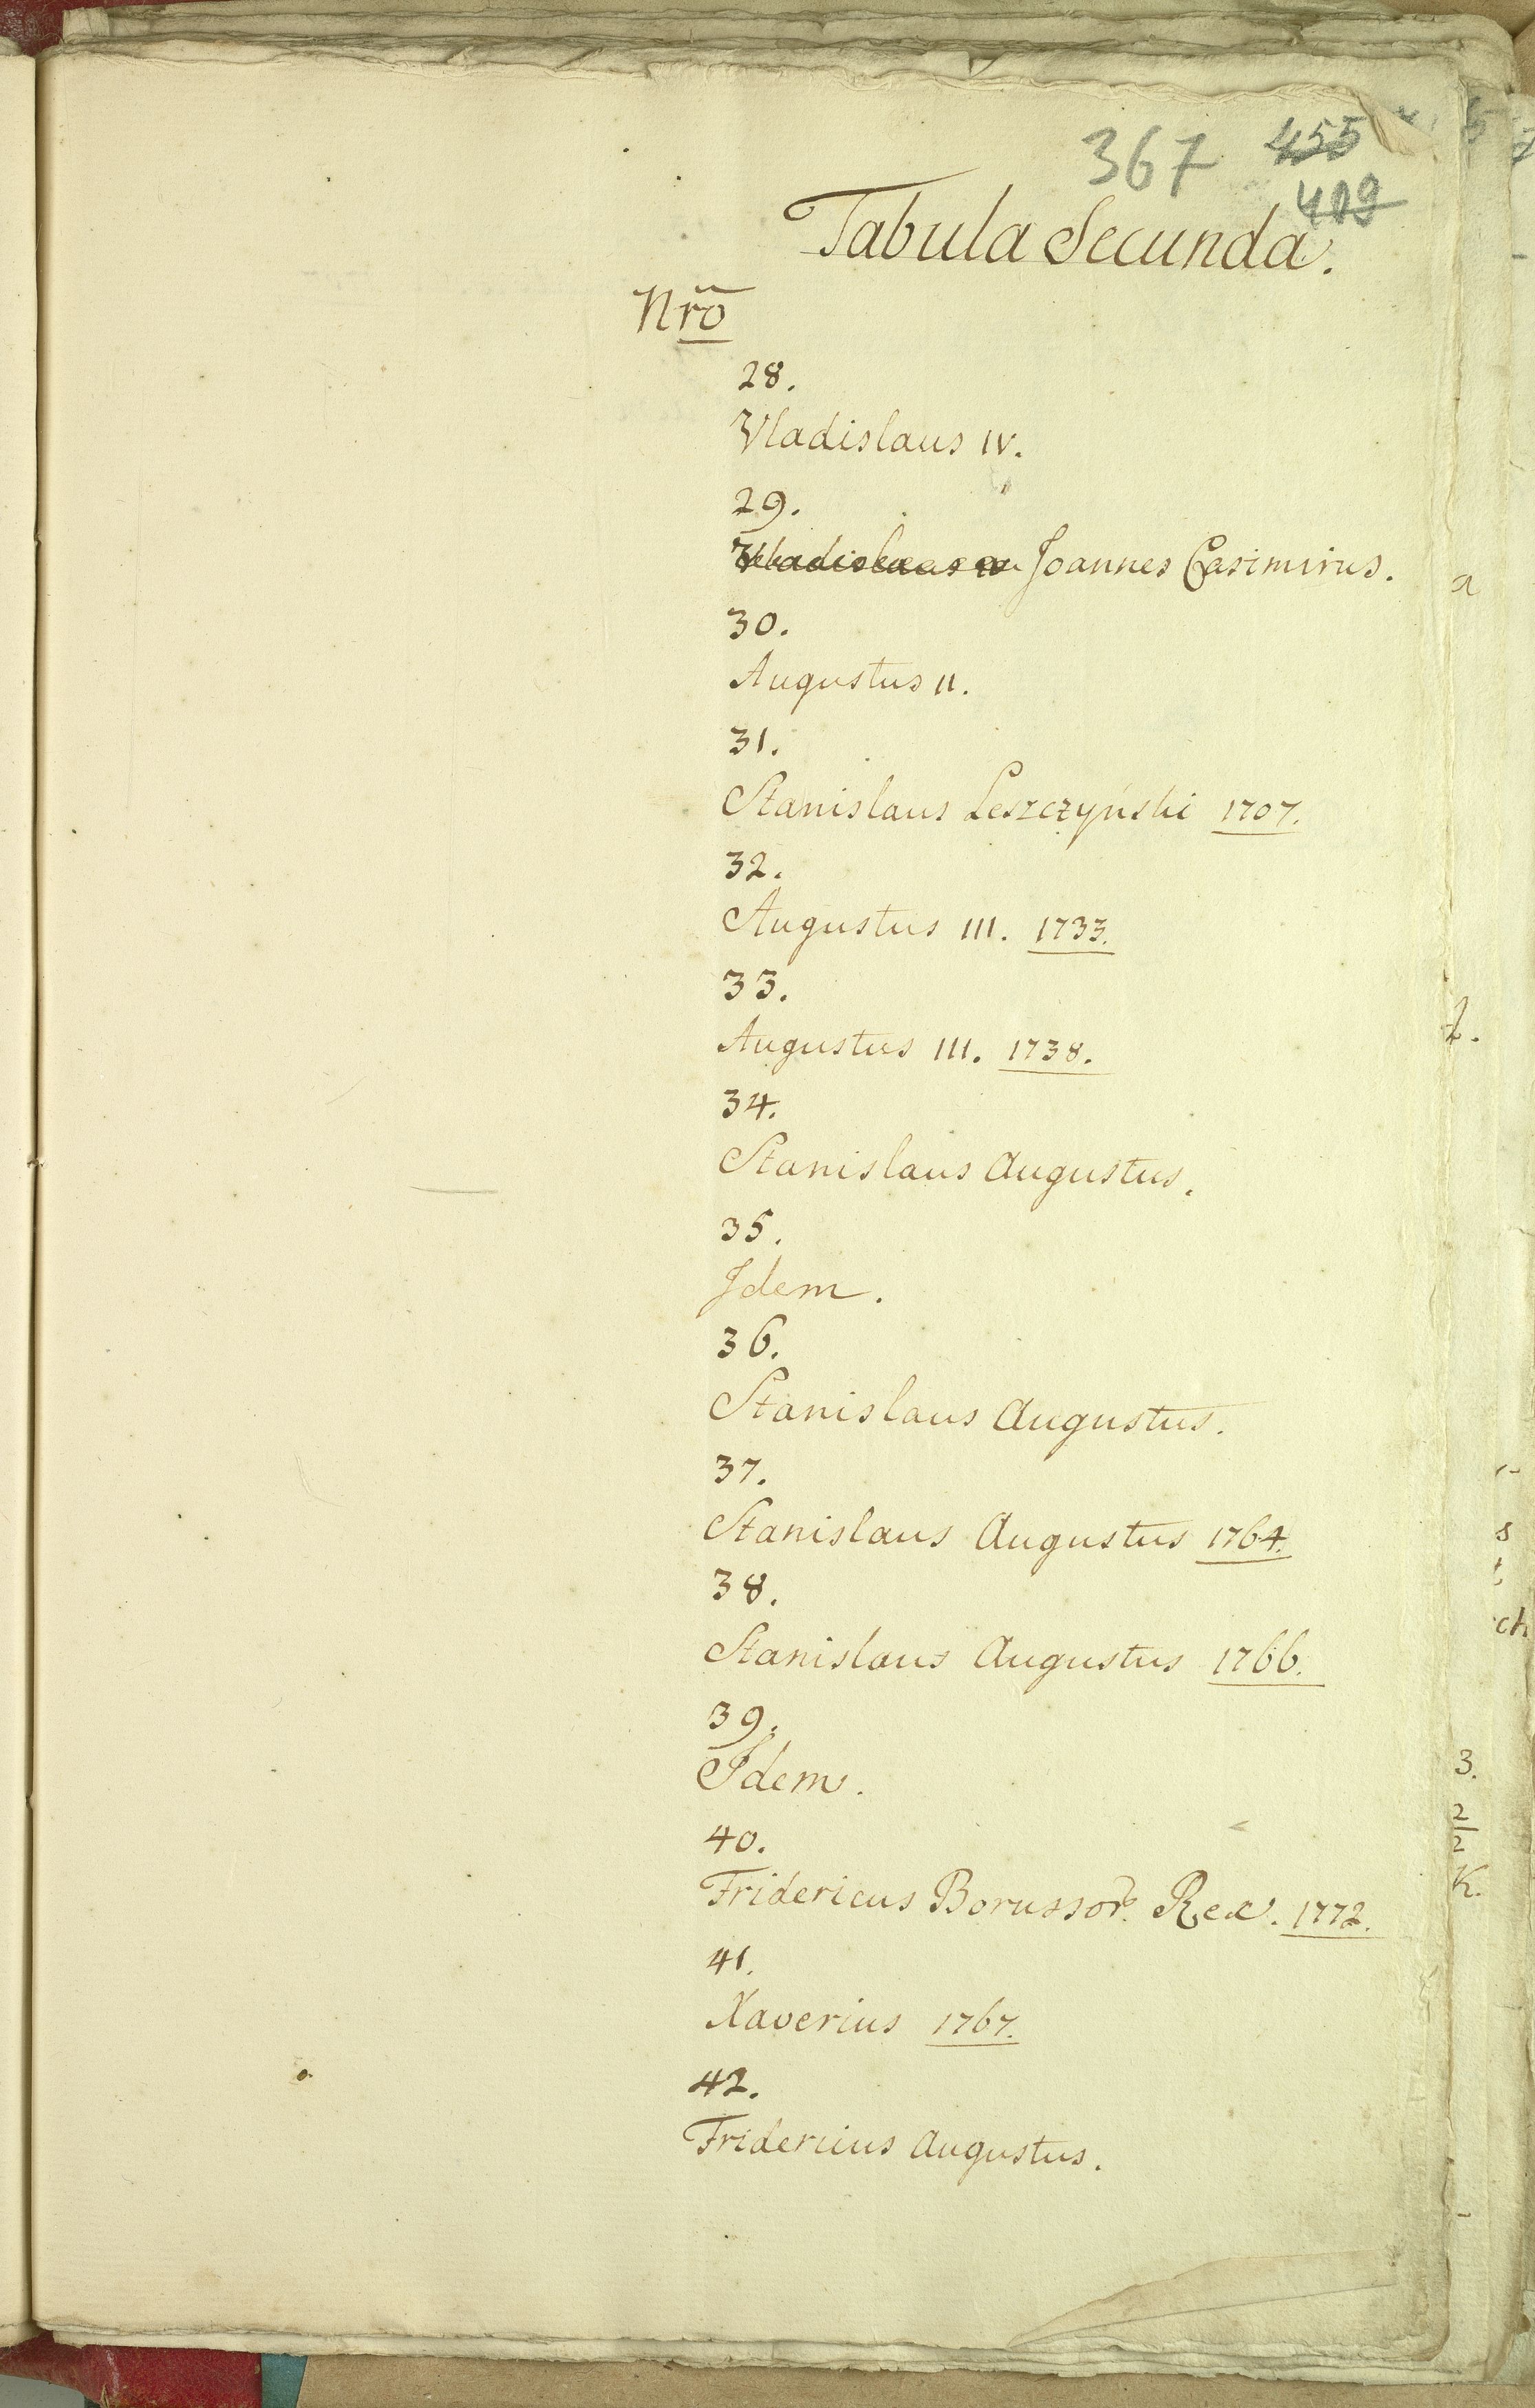 367 455
409
Tabula Secunda.
Nrõ
28.
Vladislaus IV.
29.
Vladislaus IV Joannes Casimirus.
30.
Augustus II.
31.
Stanislaus Leszczyński 1707.
32.
Augustus III. 1733.
33.
Augustus III. 1738.
34.
Stanislaus Augustus.
35.
Idem.
36.
Stanislaus Augustus.
37.
Stanislaus Augustus 1764.
38.
Stanislaus Augustus 1766.
39.
Idem.
40.
Fridericus Borussor. Rex. 1772.
41.
Xaverius 1767.
42.
Fridericus Augustus.